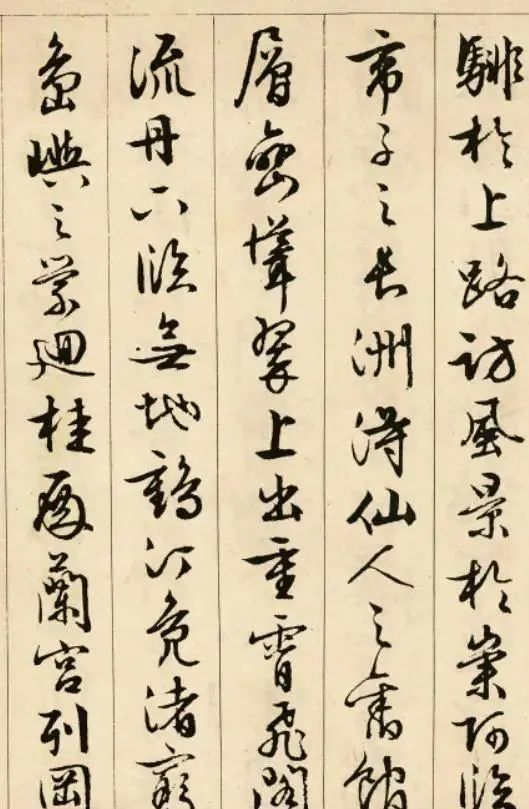 騑於上路訪風景於崇阿臨
帝子之長洲得仙人之舊館
層巒聳翠上出重霄飛閣
流丹下臨無地鶴汀鳧渚窮
島嶼之縈廻桂殿蘭宮列岡